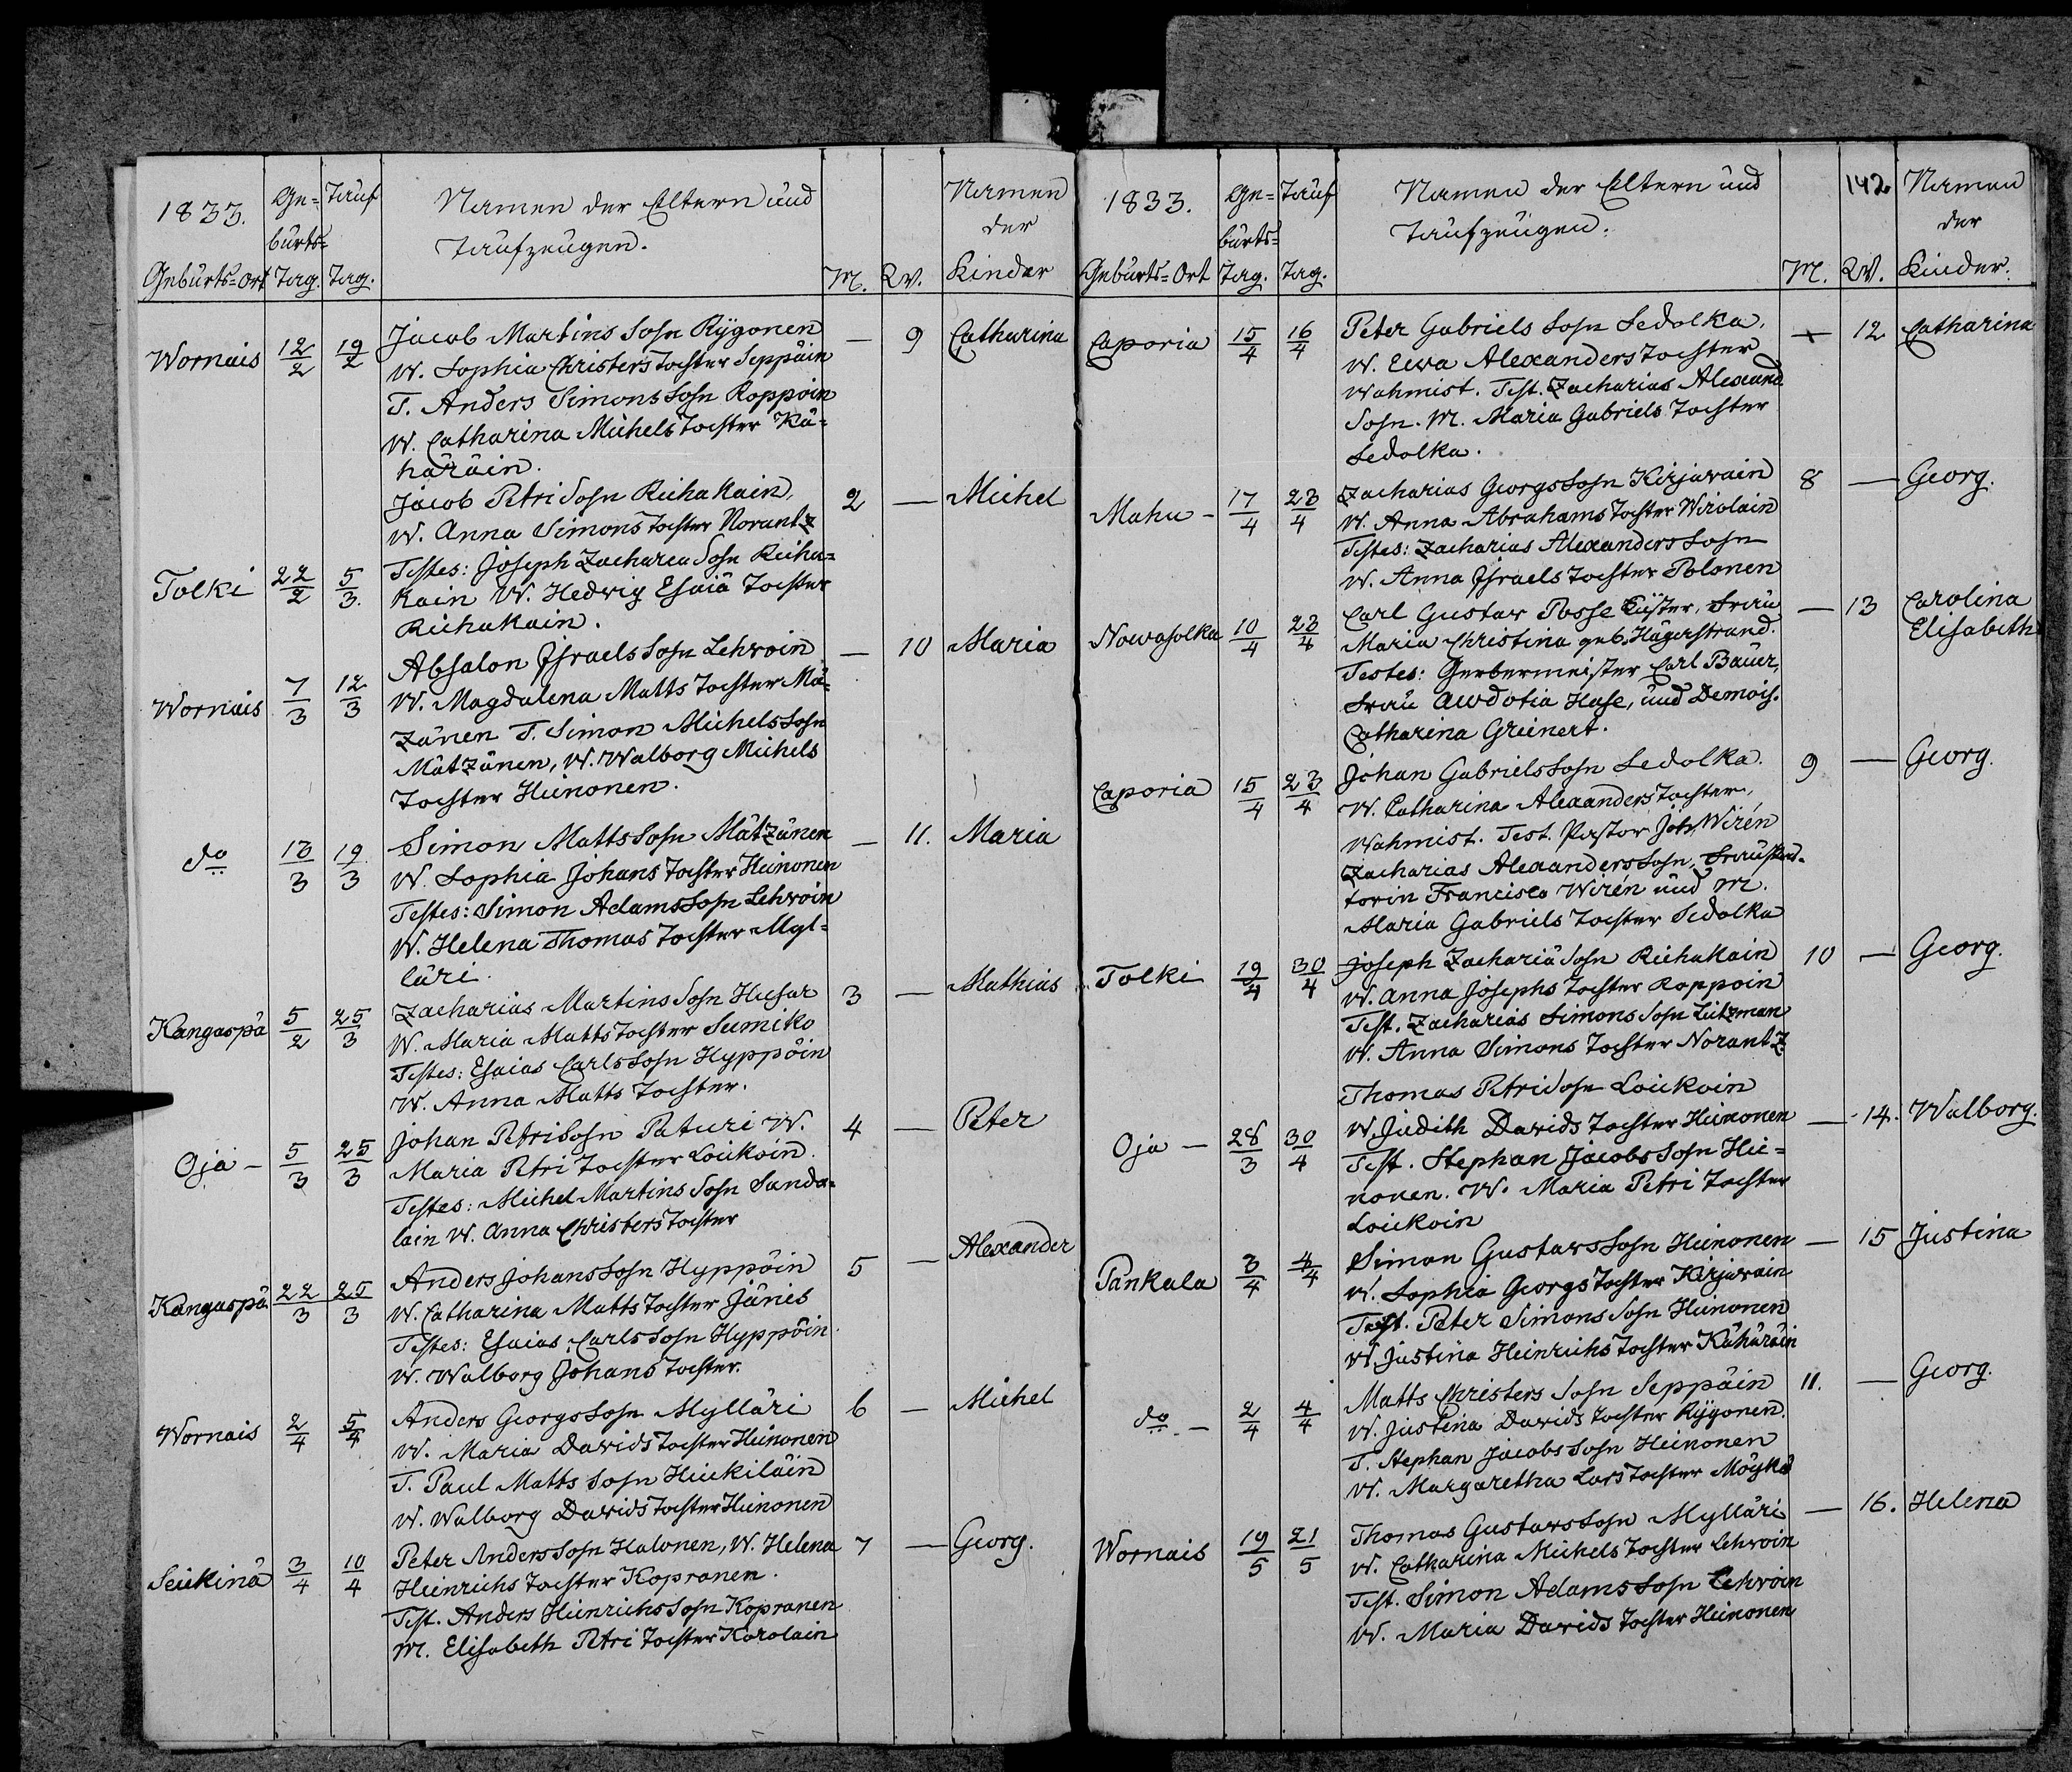 1833.
Ge=
Tauf
Namen der Eltern und
Namen
burts=
Taufzeugen.
der
Geburts=Ort
Tag.
Tag.
M.
W.
Kinder
Wornais 12/2 19/2 Jacob Martins Sohn Rÿgonen — 9 Catharina
W. Sophia Christers Tochter Seppäin
T. Anders Simons Sohn Roppoin
W. Catharina Michels Tochter Kä=
häräin.
Jacob Petri Sohn Reihakain, 2 — Michel
W. Anna Simons Tochter Norantz
Testes: Joseph Zacharea Sohn Reiha=
Tolki 22/2 5/3. kain W. Hedwig Esaiä Tochter
Reihakain.
Absalon Israels Sohn Lehwoin — 10 Maria
Wornais 7/3 12/3 W. Magdalena Matts Tochter Mä=
zänen T. Simon Michels Sohn
Mätzänen, W. Walborg Michels
Tochter Heinonen.
do 13/3 19/3 Simon Matts Sohn Mätzänen — 11. Maria
W. Sophia Johans Tochter Heinonen
Testes: Simon Adams Sohn Lehwoin
W. Helena Thomas Tochter Myl=
läri.
Kangaspä 5/2 25/3 Zacharias Martins Sohn Husar 3 — Mathias
W. Maria Matts Tochter Sumiko
Testes: Esaias Carls Sohn Hyppöin
W. Anna Matts Tochter.
Oja — 5/3 25/3 Johan Petri Sohn Paturi W. 4 — Peter
Maria Petri Tochter Loukoin.
Testes: Michel Martins Sohn Sanda=
lain W. Anna Christers Tochter
Kangaspä 22/3 25/3 Anders Johans Sohn Hyppöin 5 — Alexander
W. Catharina Matts Tochter Jänes
Testes: Esaias Carls Sohn Hyppöin
W. Walborg Johans Tochter.
Wornais 2/4 5/4 Anders Georgs Sohn Mylläri 6 — Michel
W. Maria Davids Tochter Heinonen
T. Paul Matts Sohn Heickiläin
W. Walborg Davids Tochter Heinonen
Seickinä 3/4 10/4 Peter Anders Sohn Halonen, W. Helena 7 — Georg.
Heinrichs Tochter Kopranen.
Test. Anders Heinrichs Sohn Kopranen
M. Elisabeth Petri Tochter Karolain
1833.
Ge=
Tauf
Namen der Eltern und
142
Namen
burts=
Taufzeugen.
der
Geburts=Ort
Tag.
Tag.
M.
W.
Kinder.
Caporia 15/4 16/4 Peter Gabriels Sohn Sedolka, — 12 Catharina
W. Ewa Alexanders Tochter
Wahmist. Test. Zacharias Alexand
Sohn. M. Maria Gabriels Tochter
Sedolka.
Mahu — 17/4 23/4 Zacharias Georgs Sohn Kirjawain 8 — Georg.
W. Anna Abrahams Tochter Wirolain
Testes: Zacharias Alexanders Sohn
W. Anna Israels Tochter Polonen
Nowasolka 10/4 23/4 Carl Gustav Posse Küster, Frau — 13 Carolina
Maria Christina geb. Hägerstrand. Elisabeth
Testes: Gerbermeister Carl Bauer,
Frau Awdotia Hase, und Demois.
Catharina Greinert.
Caporia 15/4 23/4 Johan Gabriels Sohn Sedolka. 9 — Georg.
W. Catharina Alexanders Tochter,
Wahmist. Test. Pastor Joh. Wirén
Zacharias Alexanders Sohn, Frau Pas=
torin Francisca Wirén und M.
Maria Gabriels Tochter Sedolka
Tolki 19/4 30/4 Joseph Zachariä Sohn Reihakain 10 — Georg.
W. Anna Josephs Tochter Roppoin
Test. Zacharias Simons Sohn Leitzman
W. Anna Simons Tochter Norantz.
Thomas Petri Sohn Loukoin
Oja — 28/3 30/4 W. Judith Davids Tochter Heinonen — 14. Walborg.
Test. Stephan Jacobs Sohn Hei=
nonen. W. Maria Petri Tochter
Loukoin
Pankala 3/4 4/4 Simon Gustavs Sohn Heinonen — 15 Justina
W. Sophia Georgs Tochter Kirjawain
Test. Peter Simons Sohn Heinonen
W. Justina Heinrichs Tochter Kähäräin
do — 2/4 4/4 Matts Christers Sohn Seppäin 11. — Georg.
W. Justina Davids Tochter Rÿgonen.
T. Stephan Jacobs Sohn Heinonen
W. Margaretha Lars Tochter Möykä
Wornais 19/5 21/5 Thomas Gustavs Sohn Mylläri — 16. Helena
W. Catharina Michels Tochter Lehwoin
Test. Simon Adams Sohn Lehwoin
W. Maria Davids Tochter Heinonen